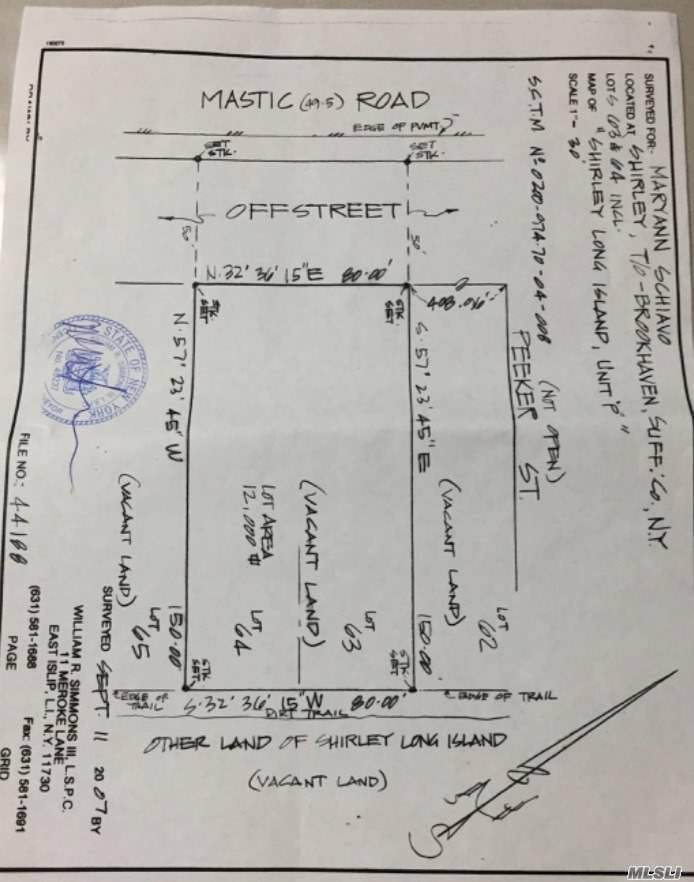 SURVEYED FOR:- MARYANN SCHIAVO
LOCATED AT SHIRLEY, T/O-BROOKHAVEN, SUFF. Co., N.Y.
LOTS 63 & 64 INCL.
MAP OF "SHIRLEY LONG ISLAND, UNIT 'P'"
SCALE 1"= 30'
S.C.T.M Nº 0200-974.70-04-008
MASTIC (49.5) ROAD
EDGE OF PVMT.
SET STK.
SET STK.
OFFSTREET
50'
50'
N. 32° 36' 15" E 80.00'
408.06'
STK SET
STK SET
PEEKER ST.
(NOT OPEN)
N. 57° 23' 45" W
150.00'
S. 57° 23' 45" E
150.00'
(VACANT LAND)
LOT 62
(VACANT LAND)
LOT 63
LOT AREA
12,000 #
LOT 64
(VACANT LAND)
LOT 65
STK SET
STK SET
EDGE OF TRAIL
S. 32° 36' 15" W 80.00'
EDGE OF TRAIL
DIRT TRAIL
OTHER LAND OF SHIRLEY LONG ISLAND
(VACANT LAND)
STATE OF NEW YORK
SURVEYED SEPT. 11 2007 BY
WILLIAM R. SIMMONS III, L.S.P.C.
11 MEROKE LANE
EAST ISLIP, L.I., N.Y. 11730
(631) 581-1688 Fax: (631) 581-1691
FILE NO.: 44188
PAGE
GRID
MLSLI